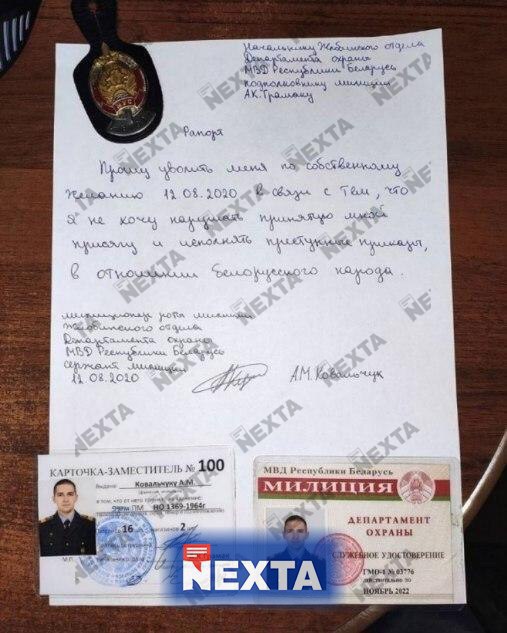 Начальнику Жабинского отдела
Департамента охраны
МВД Республики Беларусь
подполковнику милиции
А.К. Грамаку
Рапорт
Прошу уволить меня по собственному
желанию 12.08.2020 в связи с тем, что
я не хочу нарушать принятую мной
присягу и исполнять преступные приказы,
в отношении белорусского народа.
милиционер роты милиции
Жабинского отдела
Департамента охраны
МВД Республики Беларусь
сержант милиции
12.08.2020
А.М. Ковальчук
КАРТОЧКА-ЗАМЕСТИТЕЛЬ № 100
Выдана Ковальчуку А.М.
ПМ НО 1369-1964г
16
2
МВД Республики Беларусь
МИЛИЦИЯ
ДЕПАРТАМЕНТ
ОХРАНЫ
СЛУЖЕБНОЕ УДОСТОВЕРЕНИЕ
ГМО-1 № 03776
ДЕЙСТВИТЕЛЬНО ПО
НОЯБРЬ 2022
NEXTA